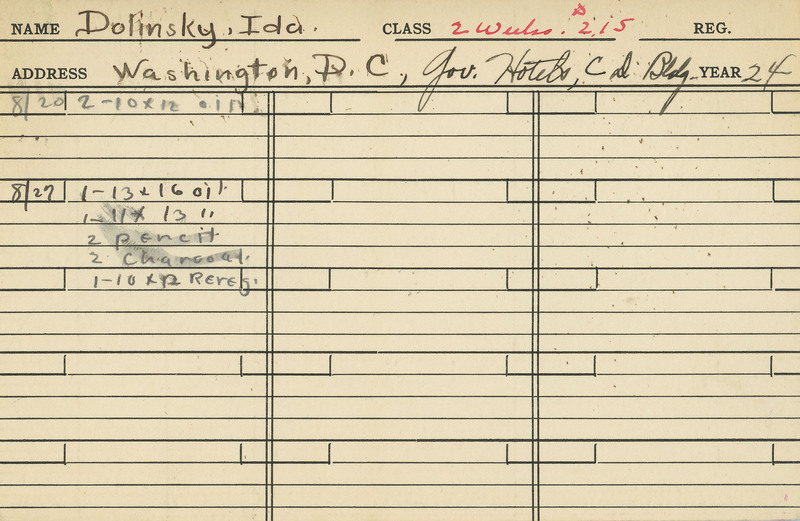 NAME Dolinsky, Ida. CLASS 2 Weeks. $2.15 REG.
ADDRESS Washington, D.C., Gov. Hotels, C D Bldg. YEAR 24
8/20 2-10x12 oil
8/27 1-13x16 oil
1-11x13 "
2 pencil
2 charcoal.
1-10x12